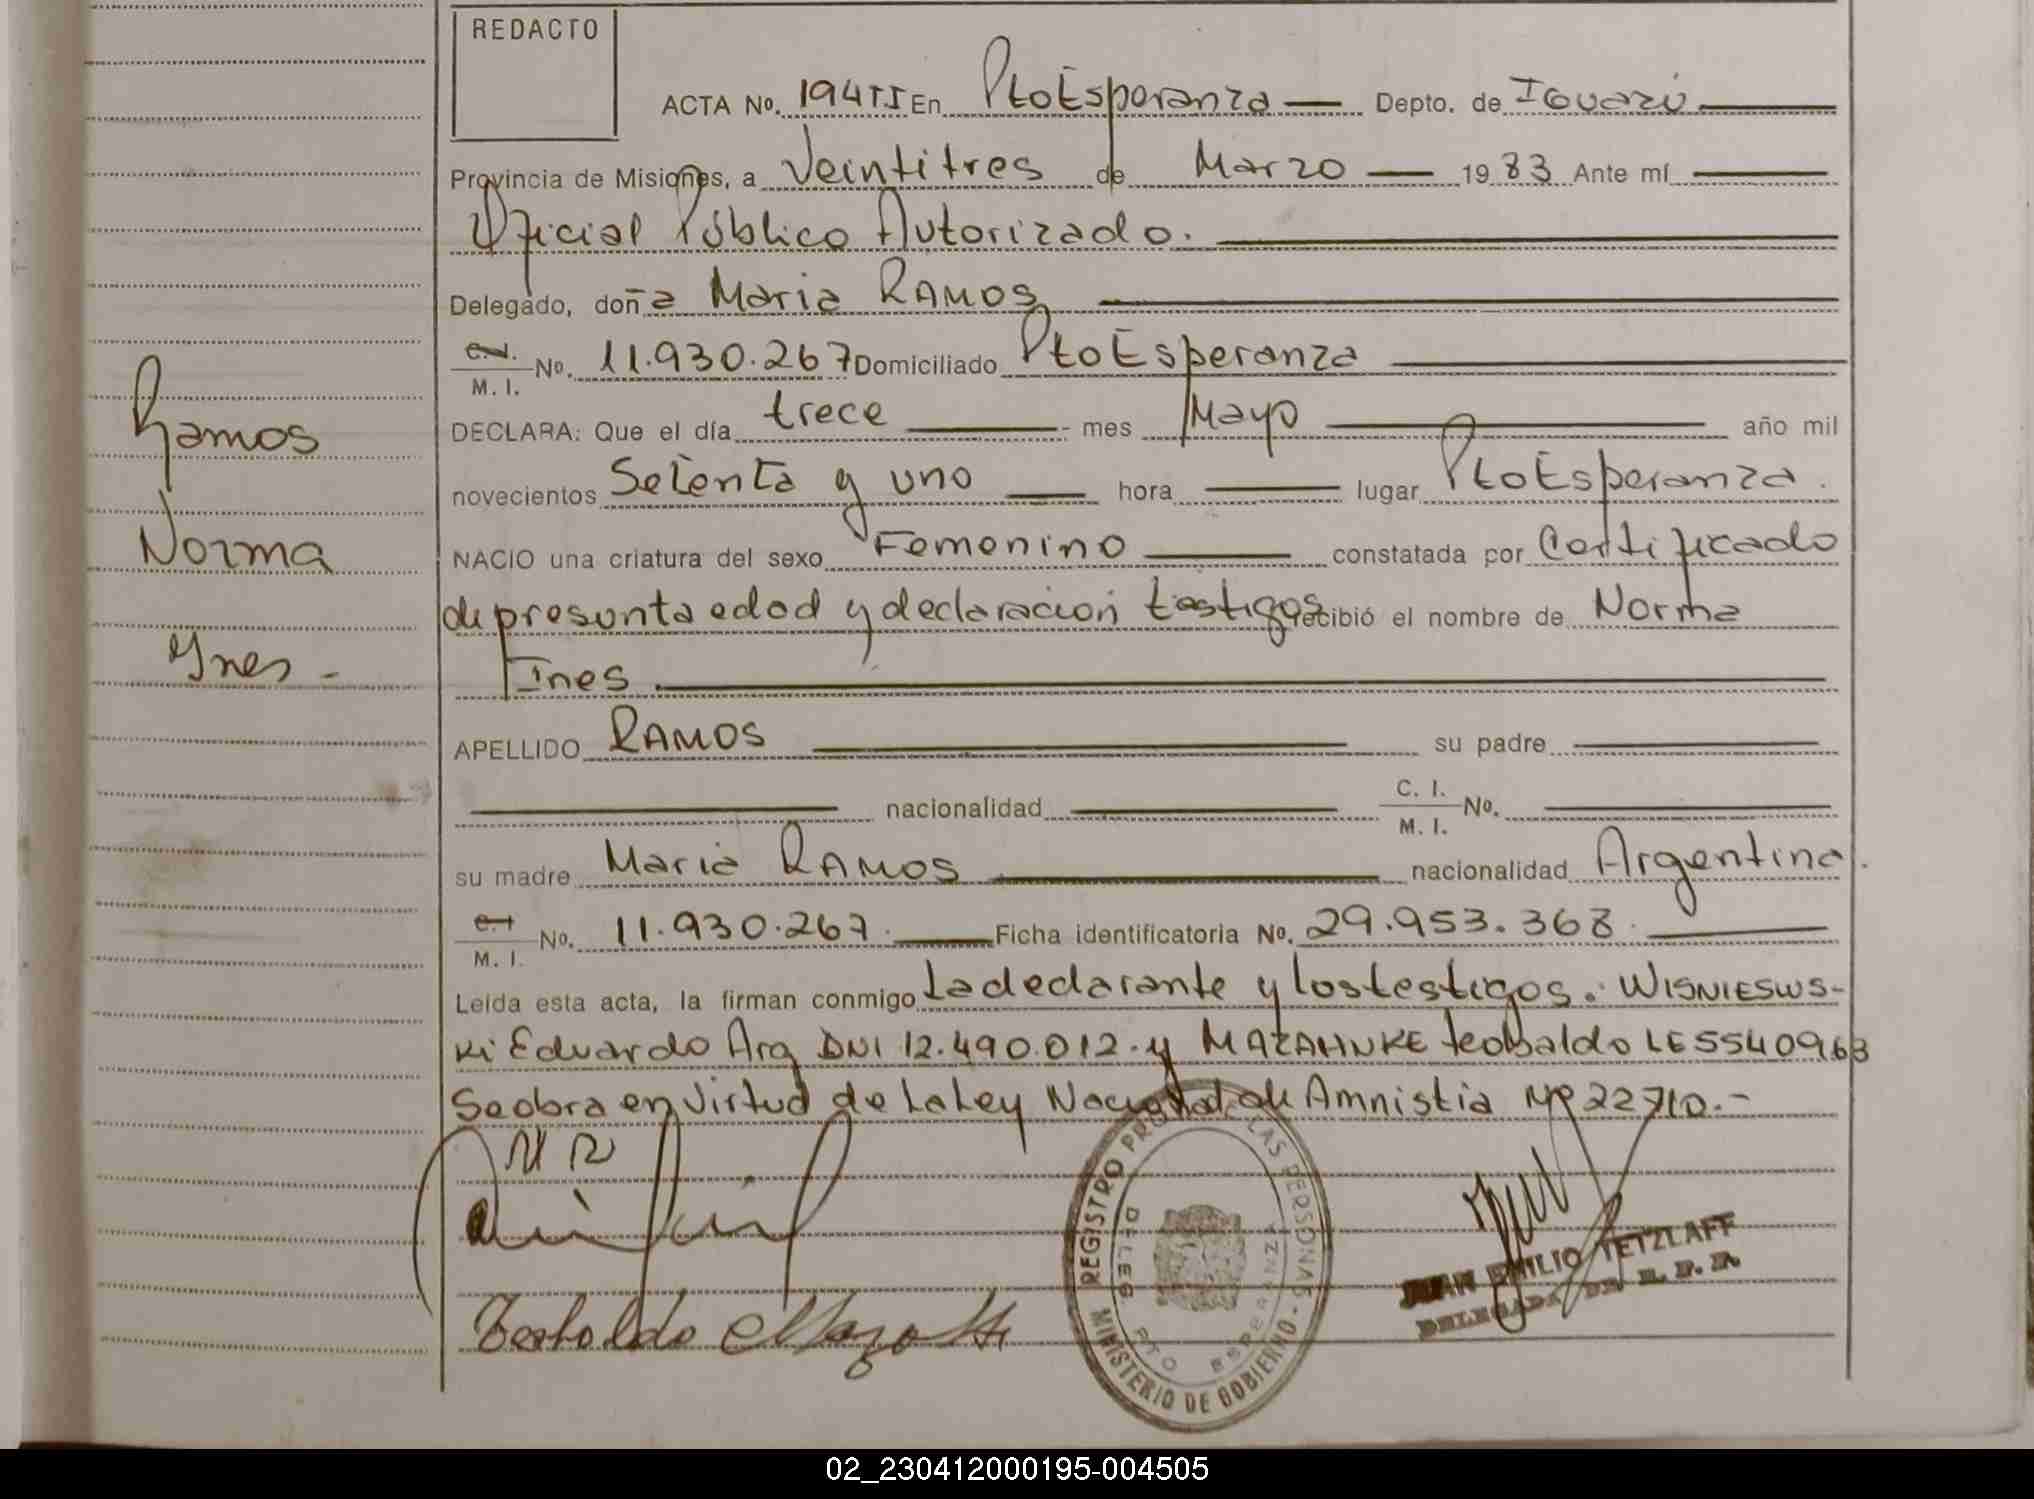 REDACTO
ACTA Nº. 194 II En Pto Esperanza Depto. de Iguazú
Provincia de Misiones, a Veintitres de Marzo 1983 Ante mí
Oficial Público Autorizado.
Delegado, doña Maria RAMOS
C.I. M. I. Nº. 11.930.267 Domiciliado Pto Esperanza
DECLARA: Que el día trece mes Mayo año mil
novecientos Setenta y uno hora lugar Pto Esperanza.
NACIO una criatura del sexo Femenino constatada por Certificado
Ramos
de presunta edad y declaracion testigos recibió el nombre de Norma
Norma
Ines
Ynes -
APELLIDO RAMOS su padre
nacionalidad C. I. M. I. Nº.
su madre Maria RAMOS nacionalidad Argentina.
C.I. M. I. Nº. 11.930.267. Ficha identificatoria Nº. 29.953.368.
Leída esta acta, la firman conmigo La declarante y los testigos. WISNIESWS-
Ki Eduardo Arg DNI 12.490.012. y MAZAHNKE teobaldo LE 5540963
Se obra en Virtud de La Ley Nacional de Amnistia Nº 22710.-
M R
Teobaldo
REGISTRO LAS PERSONAS - MINISTERIO DE GOBIERNO
DELEG. PTO ESPERANZA
JUAN EMILIO TETZLAFF
02_230412000195-004505